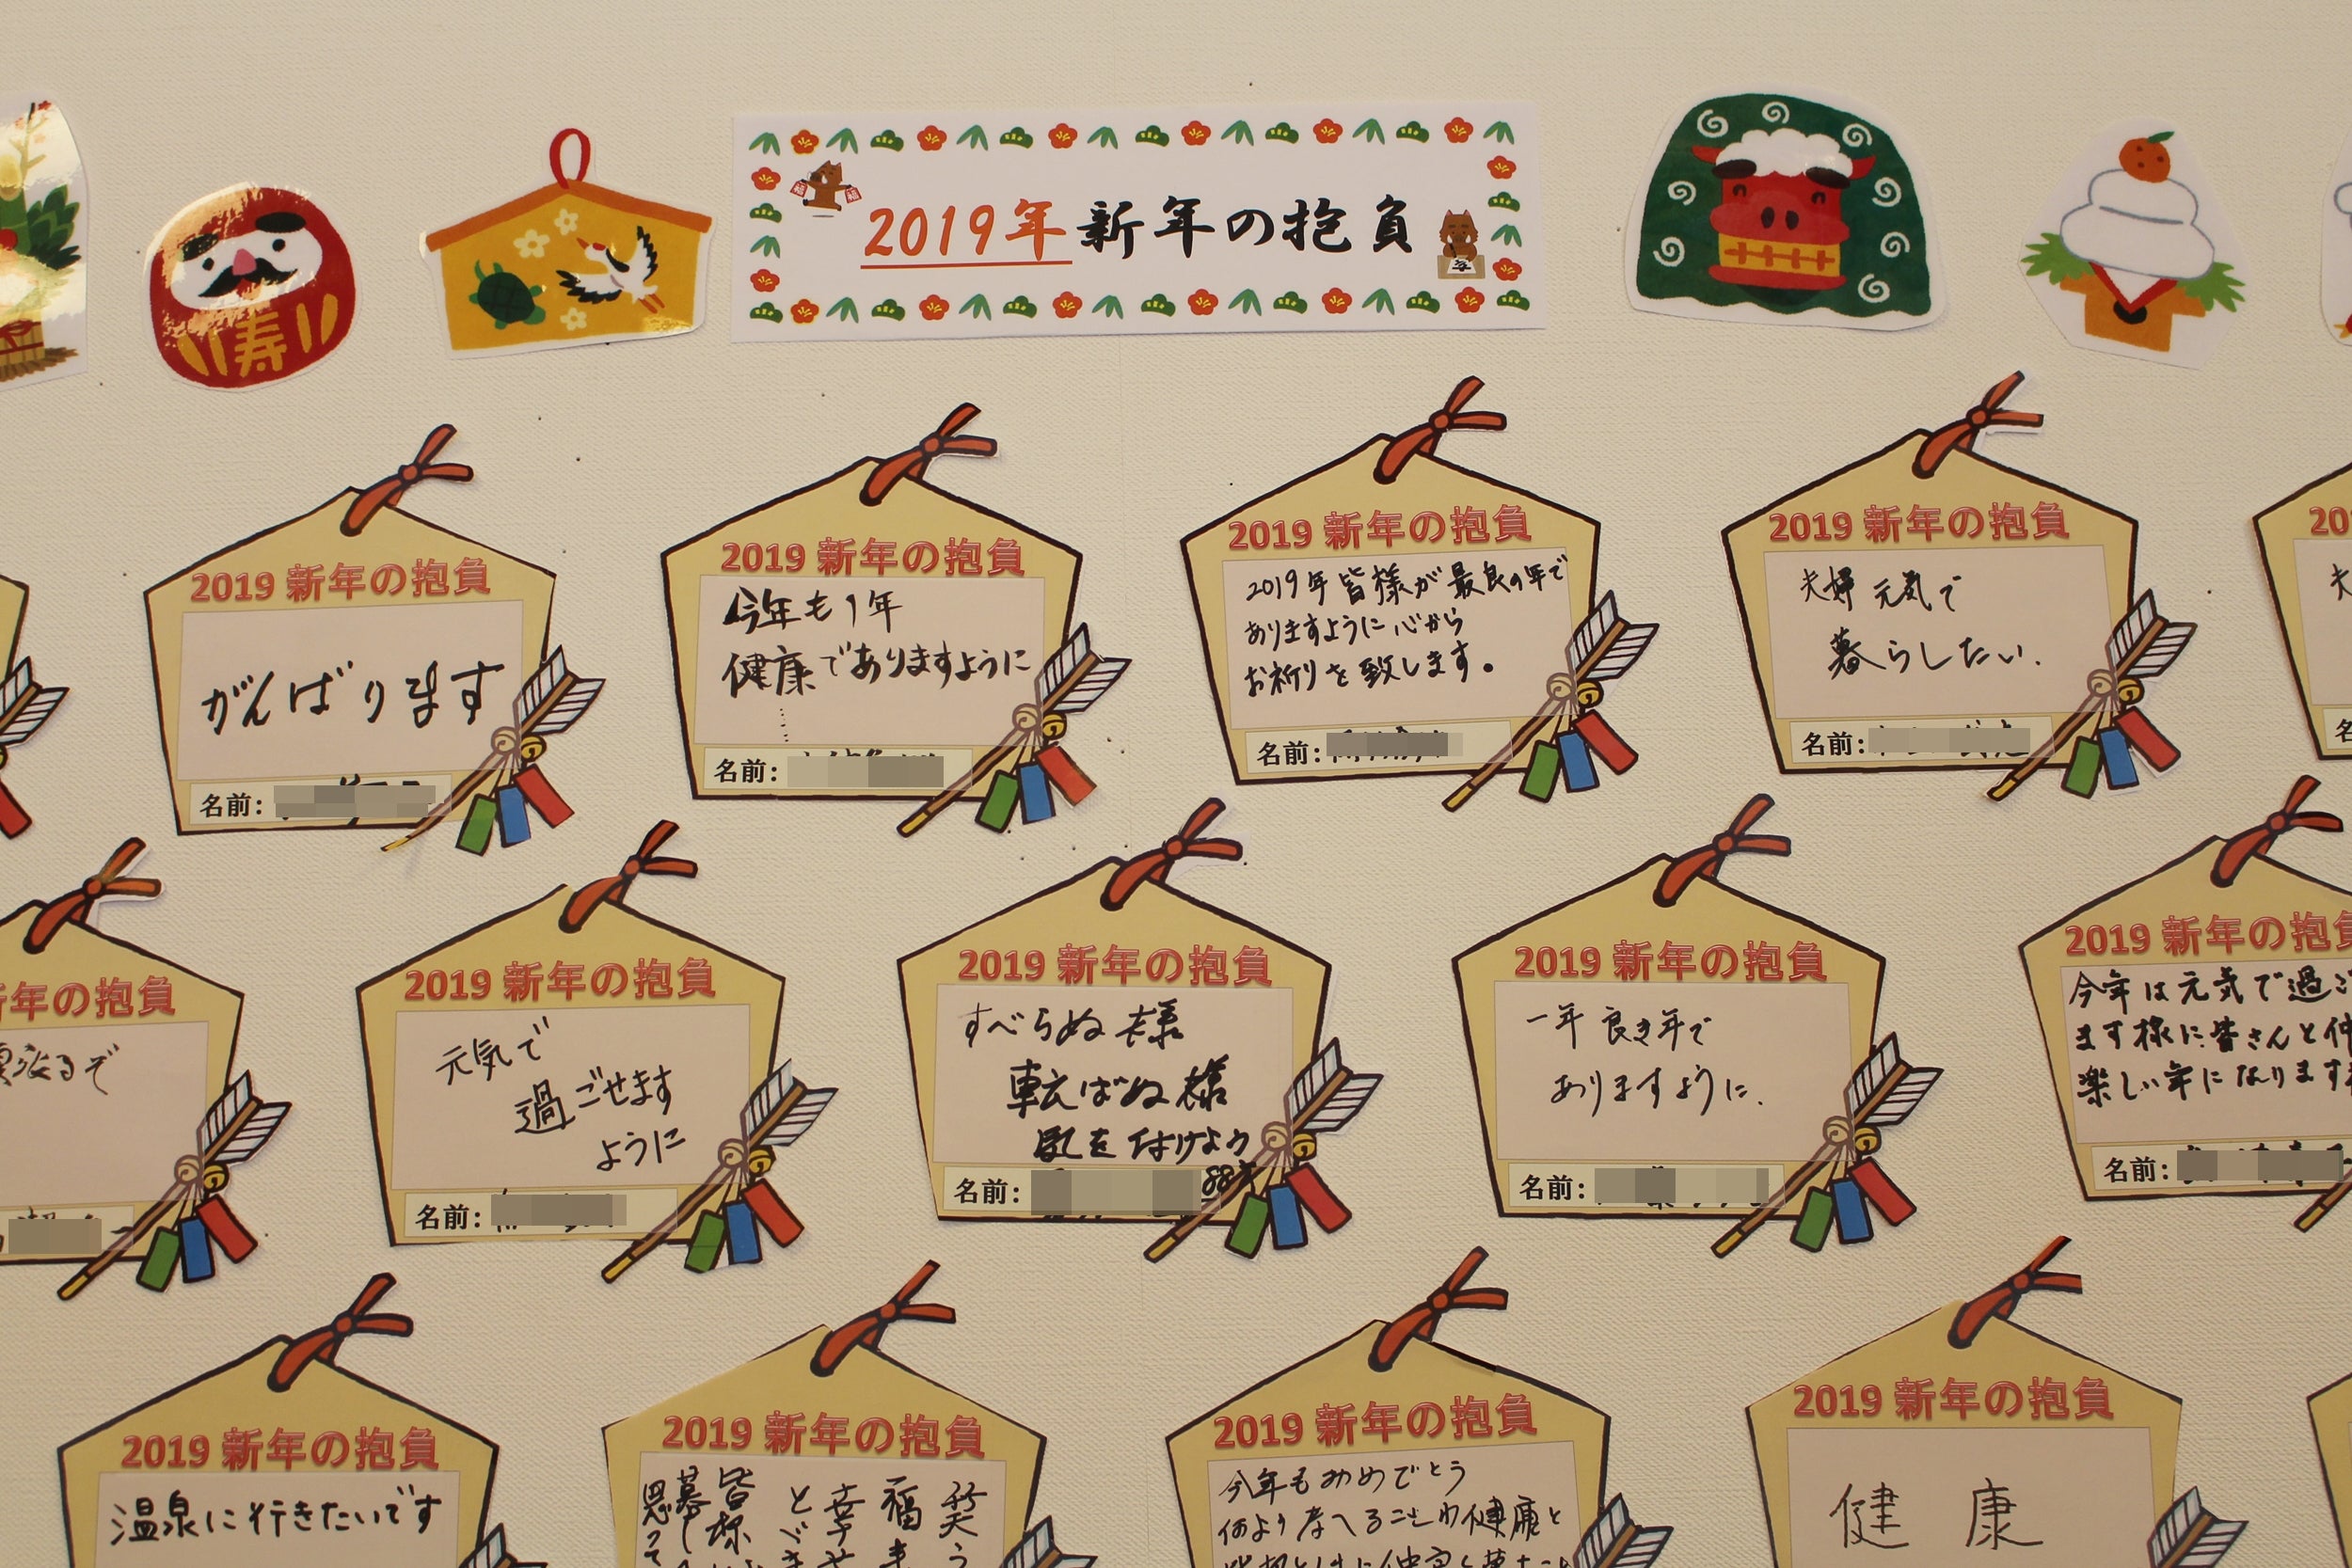 2019年新年の抱負
寿
2019 新年の抱負
がんばります
名前:
2019 新年の抱負
今年も1年
健康でありますように
名前:
2019 新年の抱負
2019年皆様が最良の年で
ありますように心から
お祈りを致します。
名前:
2019 新年の抱負
夫婦元気で
暮らしたい.
名前:
20
名
新年の抱負
張るぞ
2019 新年の抱負
元気で
過ごせます
ように
名前:
2019 新年の抱負
すべらぬ様
転ばぬ様
気を付けよう
名前:
88才
2019 新年の抱負
一年良き年で
ありますように.
名前:
2019 新年の抱負
今年は元気で過ご
ます様に皆さんと仲
楽しい年になります
名前:
2019 新年の抱負
温泉に行きたいです
2019 新年の抱負
笑う
福
幸せ
とど
皆様
暮し
思って
2019 新年の抱負
今年もおめでとう
何より
健康と
2019 新年の抱負
健康